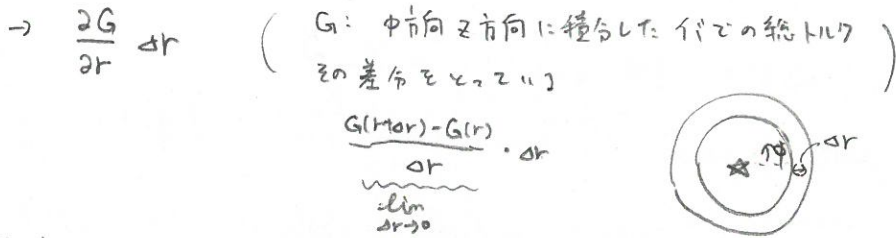 → ∂G/∂r Δr ( G: φ方向 z方向に積分した rでの総トルク
その差分をとっている )
(G(r+Δr)-G(r))/Δr ・Δr
lim
Δr→0
φ Δr